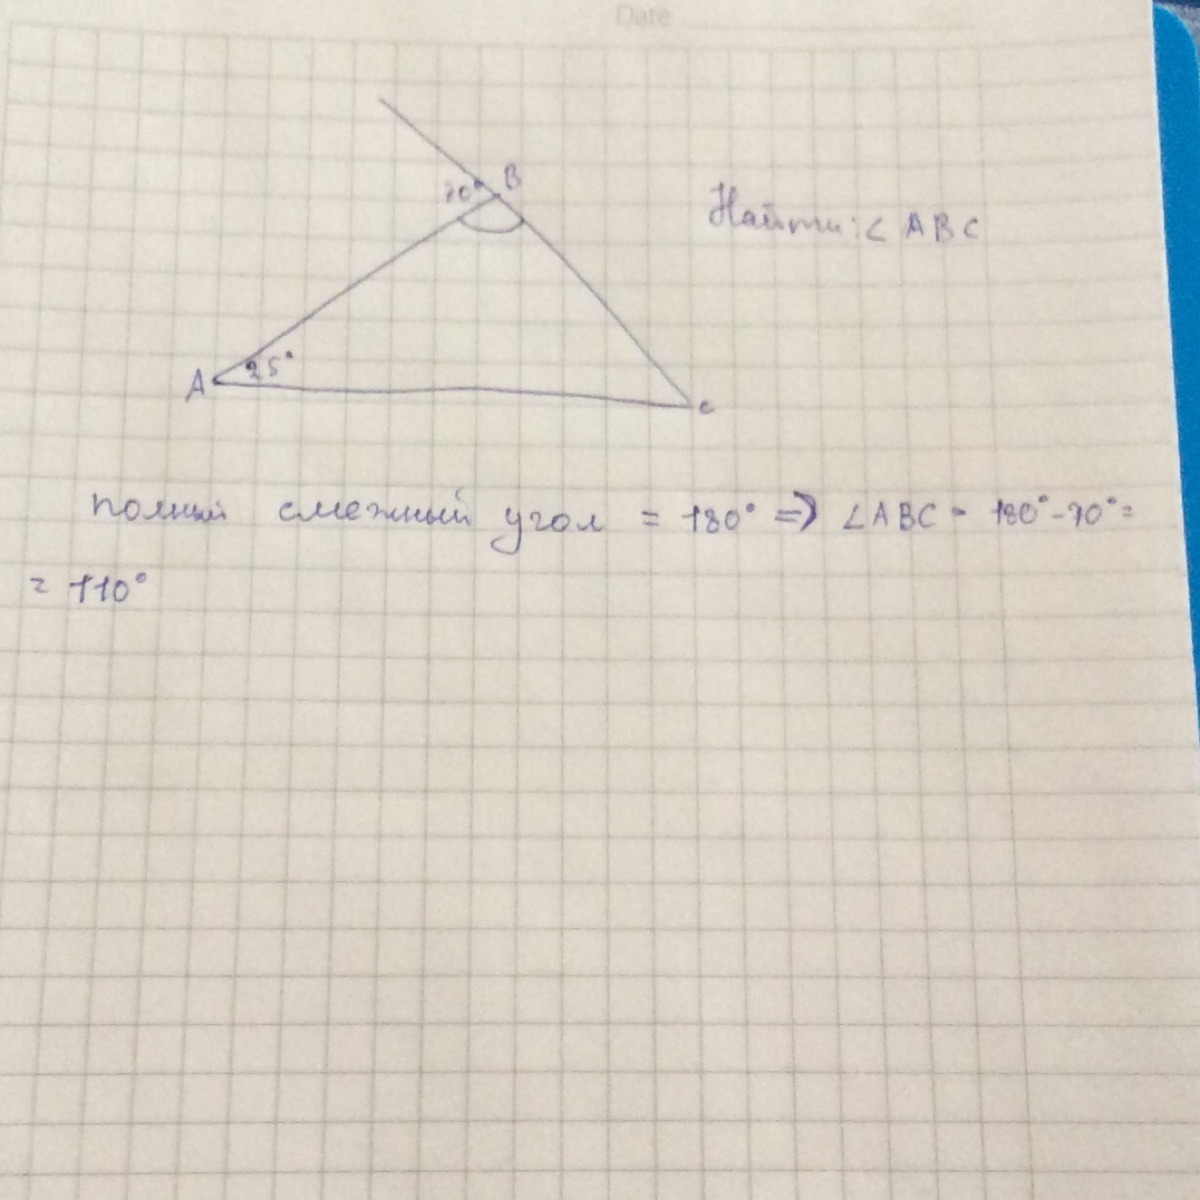 Date
70° B
Найти: ∠ ABC
A 25°
c
полный смежный угол = 180° => ∠ABC = 180° - 70° =
= 110°